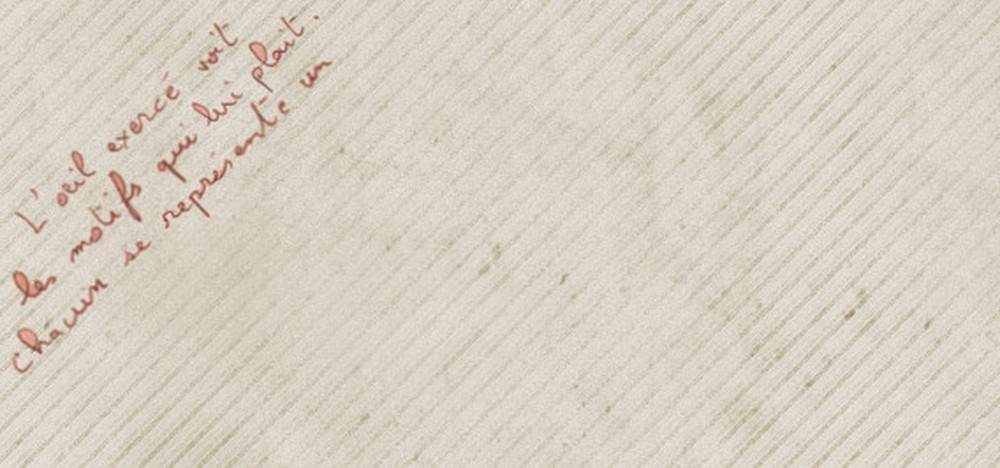 L'œil exercé voit
les motifs qui lui plait.
chacun se représente un